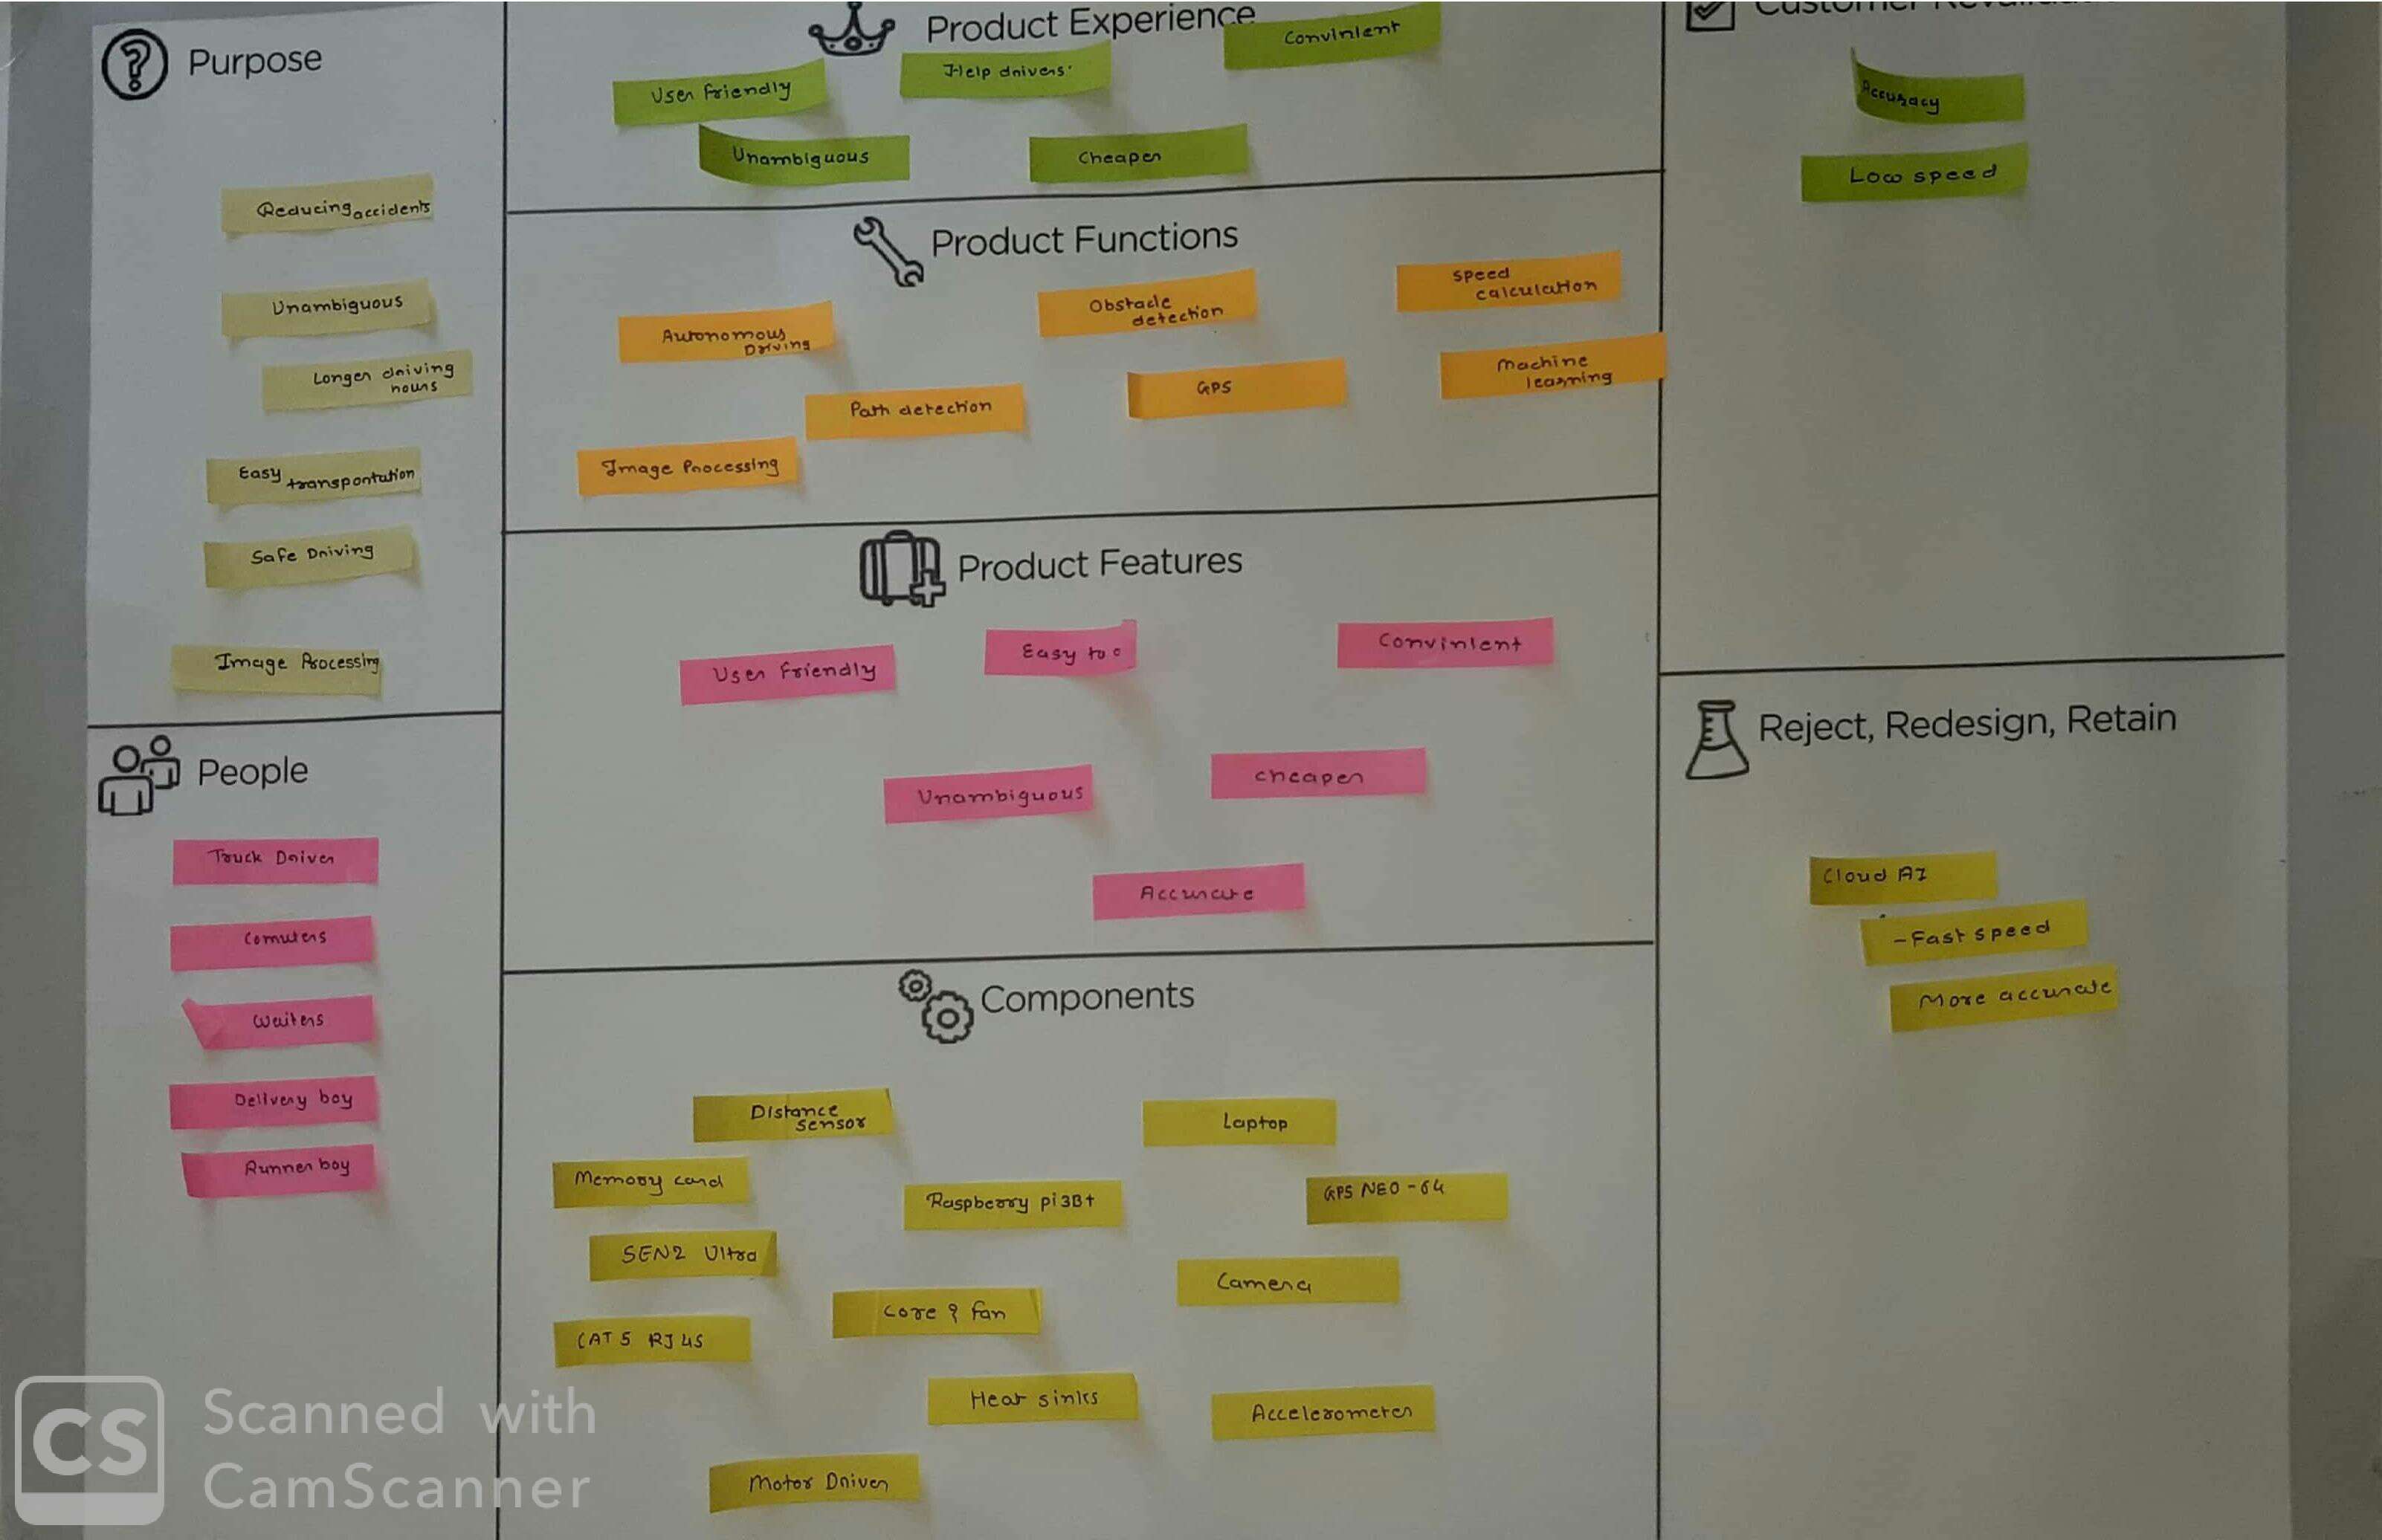 Purpose
Reducing accidents
Unambiguous
Longer driving
hours
Easy transportation
Safe Driving
Image Processing
People
Truck Driver
Comuters
Waiters
Delivery boy
Runner boy
Product Experience
User friendly
Help drivers
Convinient
Unambiguous
Cheaper
Product Functions
Autonomous
Driving
Obstacle
detection
speed
calculation
Path detection
GPS
Machine
learning
Image Processing
Product Features
User friendly
Easy to
Convinient
Unambiguous
cheaper
Accurate
Components
Distance
sensor
Laptop
Memory card
Raspberry pi3B+
GPS NEO-
SEN2 Ultra
Camera
Core & fan
CAT 5 RJ45
Heat sinks
Accelerometer
Motor Driver
Customer
Accuracy
Low speed
Reject, Redesign, Retain
Cloud AI
- Fast speed
More accurate
CS
Scanned with
CamScanner